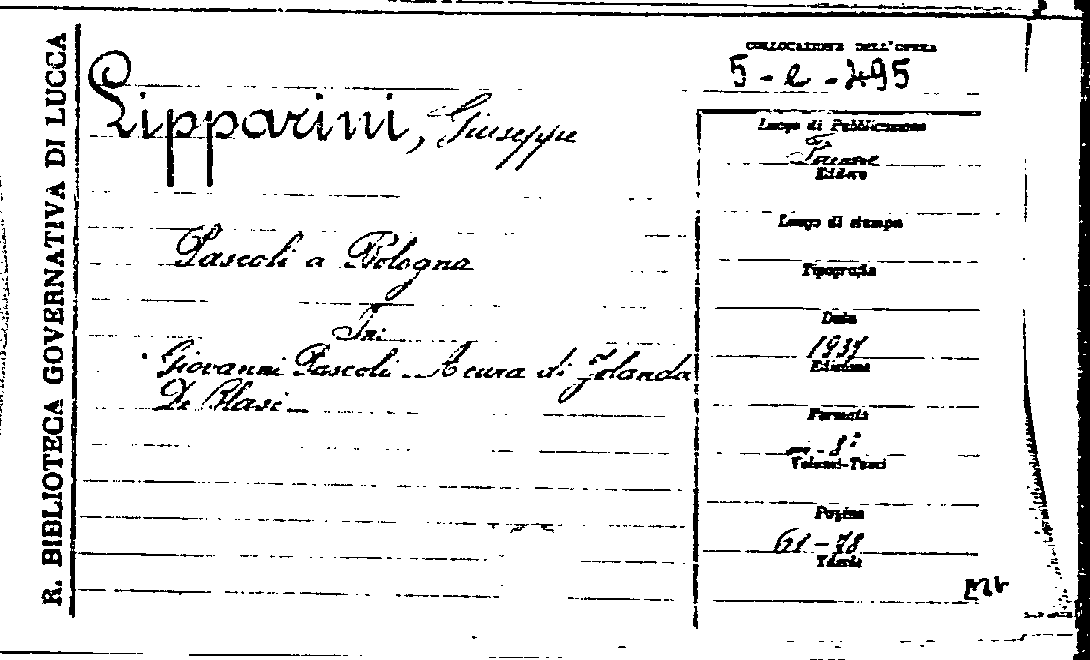 R. BIBLIOTECA GOVERNATIVA DI LUCCA
COLLOCAZIONE DELL'OPERA
5 - e - 495
Lipparini, Giuseppe
Pascoli a Bologna
In:
Giovanni Pascoli - A cura di Jolanda
De Blasi -
Luogo di Pubblicazione
Firenze
Editore
Luogo di stampa
Tipografia
Data
1937
Edizione
Formato
in - 8°
Volumi-Tomi
Pagine
61 - 78